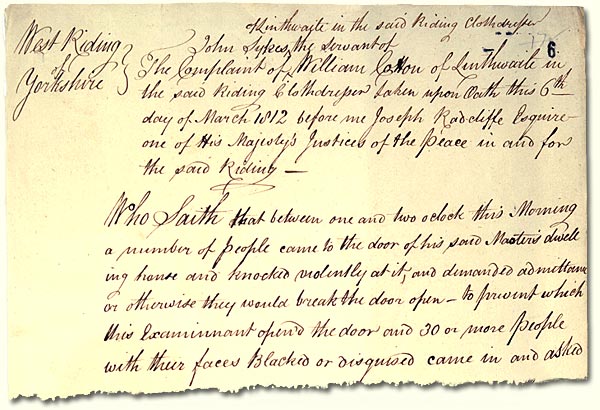 of Linthwaite in the said Riding Clothdresser
6
West Riding
of
Yorkshire
John Sykes the Servant of
The Complaint of William Cotton of Linthwaite in
the said Riding Clothdresser taken upon Oath this 6th
day of March 1812 before me Joseph Radcliffe Esquire
one of His Majesty's Justices of the Peace in and for
the said Riding —
Who Saith that between one and two oclock this Morning
a number of People came to the door of his said Master's dwell
ing house and knocked violently at it, and demanded admittance
or otherwise they would break the door open – to prevent which
this Examinnant opend the door and 30 or more People
with their faces Blacked or disguised came in and asked